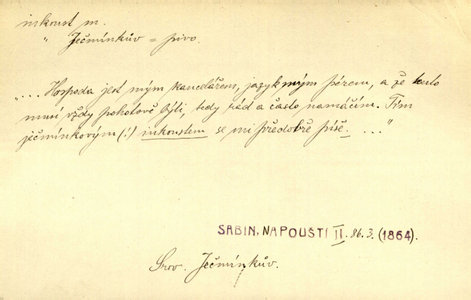 inkoust m.
" Ječmínkův = pivo
"... Hospoda jest mým kancelářem, jazyk mým pérem, a že tento
musí vždy pohotově býti, tedy rád a často namáčím. Tím
ječmínkovým (!) inkoustem se mi předobře píše. ..."
SABIN. NA POUŠTI II. 86. 3. (1864).
Srov. Ječmínkův.